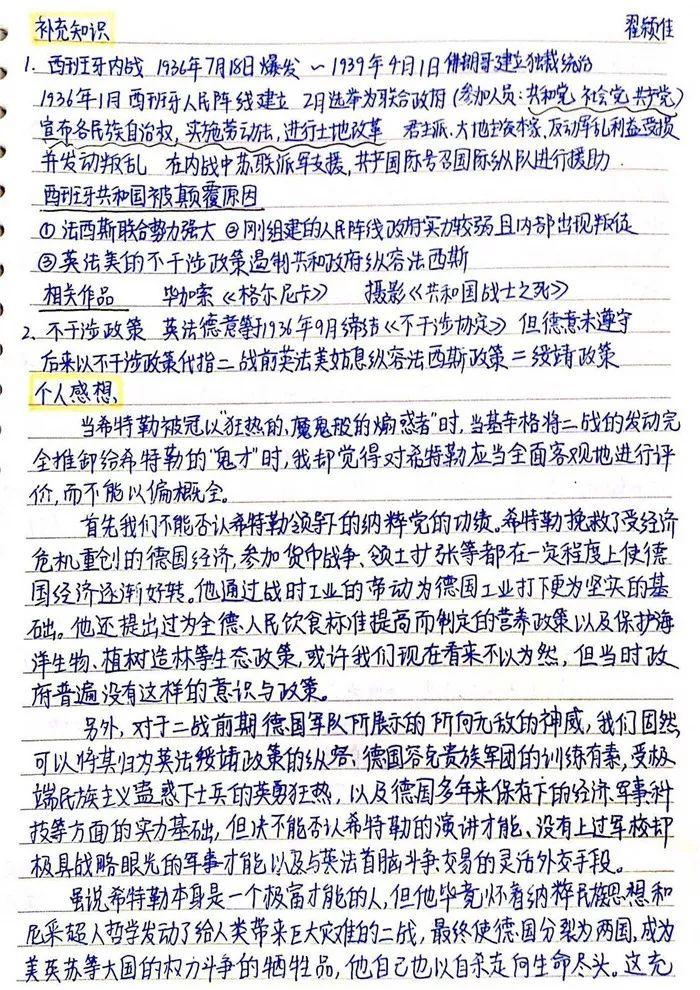 补充知识 翟颖佳
1. 西班牙内战 1936年7月18日爆发 ~ 1939年4月1日佛朗哥建立独裁统治
1936年1月 西班牙人民阵线建立 2月选举为联合政府(参加人员:共和党 社会党 共产党)
宣布各民族自治权,实施劳动法,进行土地改革 君主派、大地主资本家、反动军乱利益受损
并发动叛乱 在内战中苏联派军支援,共产国际号召国际纵队进行援助.
西班牙共和国被颠覆原因
①法西斯联合势力强大 ②刚组建的人民阵线政府实力较弱且内部出现叛徒
③英法美的不干涉政策遏制共和政府纵容法西斯
相关作品 毕加索《格尔尼卡》 摄影《共和国战士之死》
2、不干涉政策 英法德意等于1936年9月缔结《不干涉协定》 但德意未遵守
后来以不干涉政策代指二战前英法美姑息纵容法西斯政策=绥靖政策
个人感想、
当希特勒被冠以“狂热的、魔鬼般的煽惑者”时,当基辛格将二战的发动完
全推卸给希特勒的“鬼才”时,我却觉得对希特勒应当全面客观地进行评
价,而不能以偏概全。
首先我们不能否认希特勒领导下的纳粹党的功绩。希特勒挽救了受经济
危机重创的德国经济,参加货币战争、领土扩张等都在一定程度上使德
国经济逐渐好转。他通过战时工业的带动为德国工业打下更为坚实的基
础。他还提出过为全德人民饮食标准提高而制定的营养政策以及保护海
洋生物、植树造林等生态政策,或许我们现在看来不以为然,但当时政
府普遍没有这样的意识与政策。
另外,对于二战前期德国军队所展示的所向无敌的神威,我们固然
可以将其归为英法绥靖政策的纵容、德国容克贵族军团的训练有素,受极
端民族主义蛊惑下士兵的英勇狂热,以及德国多年来保存下的经济、军事、科
技等方面的实力基础,但决不能否认希特勒的演讲才能、没有上过军校却
极具战略眼光的军事才能以及与英法首脑斗争、交易的灵活外交手段。
虽说希特勒本身是一个极富才能的人,但他毕竟怀着纳粹民族思想和
尼采超人哲学发动了给人类带来巨大灾难的二战,最终使德国分裂为两国,成为
美英苏等大国的权力斗争的牺牲品,他自己也以自杀走向生命尽头。这充